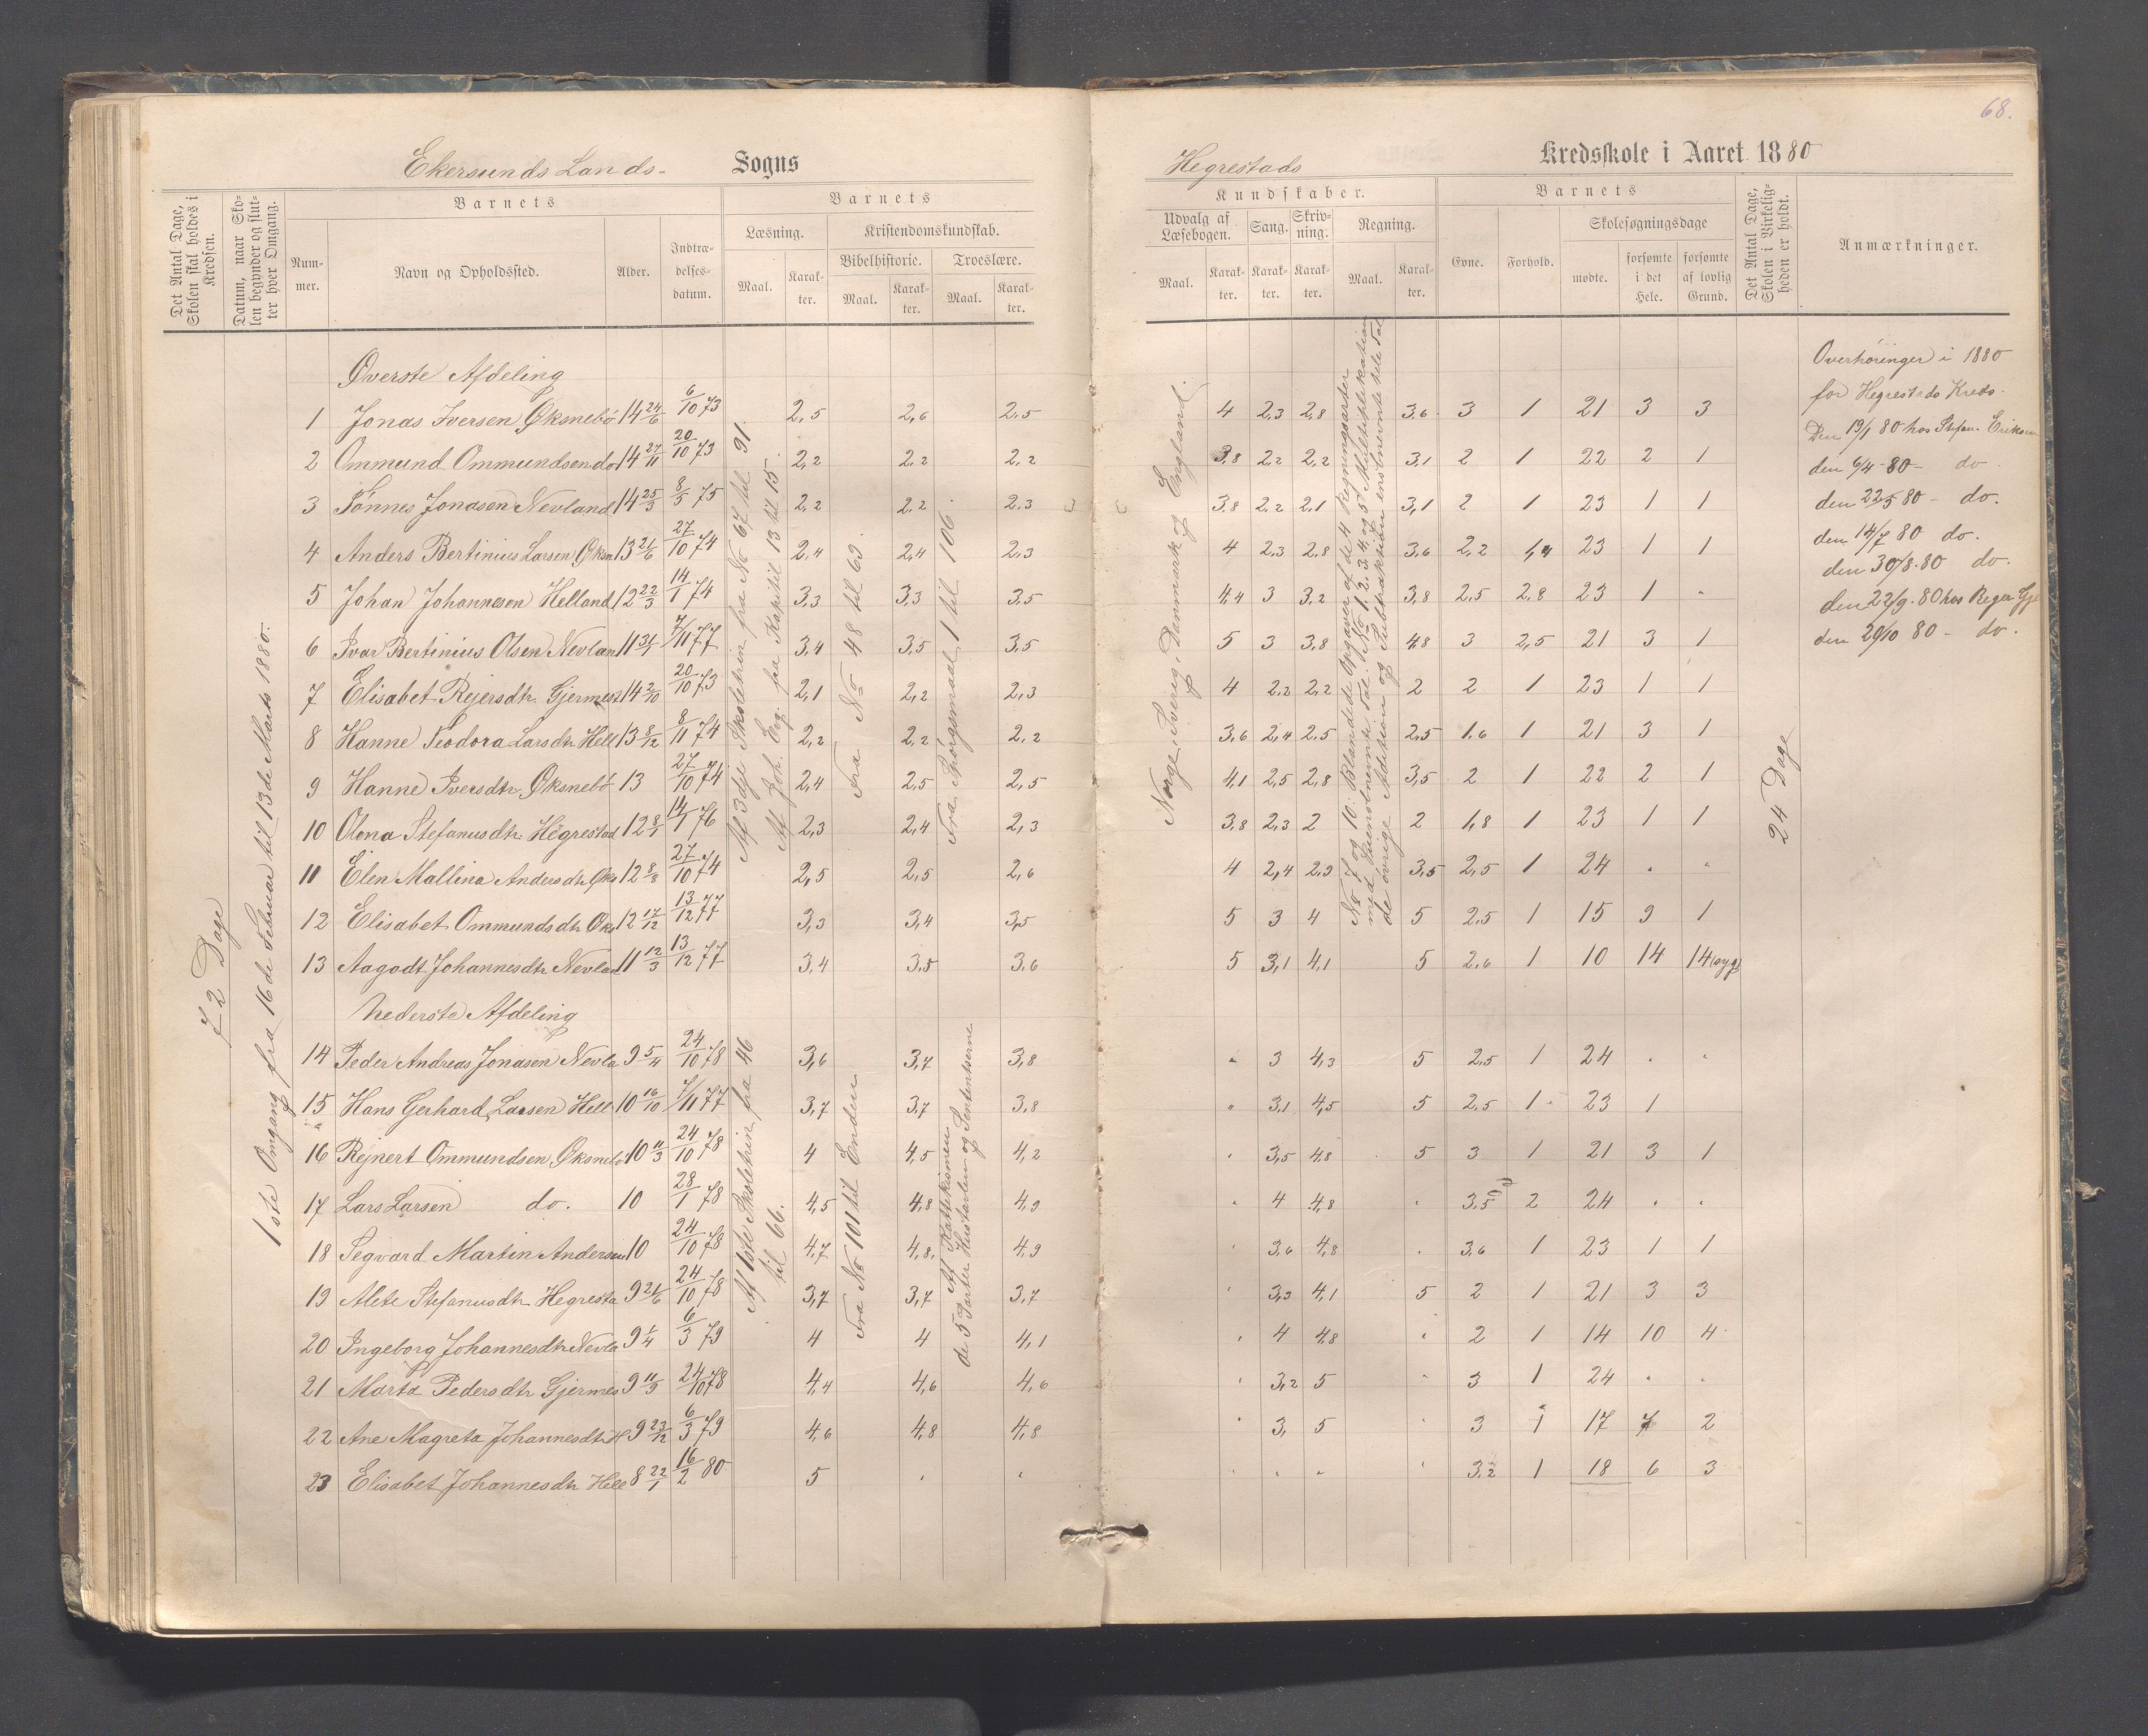 68.
Ekersunds Lands- Sogns
Hegrestads Kredsskole i Aaret 1880
Det Antal Dage, Skolen skal holdes i Kredsen.
Datum, naar Skolen begynder og slutter hver Omgang.
Barnets
Nummer.
Navn og Opholdssted.
Alder.
Indtrædelsesdatum.
Barnets
Læsning.
Maal.
Karakter.
Kristendomskundskab.
Bibelhistorie.
Maal.
Karakter.
Troeslære.
Maal.
Karakter.
Kundskaber.
Udvalg af Læsebogen.
Maal.
Karakter.
Sang.
Karakter.
Skrivning.
Karakter.
Regning.
Maal.
Karakter.
Barnets
Evne.
Forhold.
Skolesøgningsdage
mødte.
forsømte i det Hele.
forsømte af lovlig Grund.
Det Antal Dage, Skolen i Virkeligheden er holdt.
Anmærkninger.
72 Dage
1ste Omgang fra 16de Februar til 13de Marts 1880.
Øverste Afdeling
1 Jonas Iversen Øksnebø 14 24/6 6/10 73 2,5 2,6 2,5 4 2,3 2,8 3,6 3 1 21 3 3
2 Ommund Ommundsen do 14 27/11 20/10 73 2,2 2,2 2,2 3,8 2,2 2,2 3,1 2 1 22 2 1
3 Tønnes Jonasen Nevland 14 25/3 8/5 75 2,2 2,2 2,3 3,8 2,2 2,1 3,1 2 1 23 1 1
4 Anders Bertinius Larsen Øksn 13 21/6 27/10 74 2,4 2,4 2,3 4 2,3 2,8 3,6 2,2 1,4 23 1 1
5 Johan Johannesen Helland 12 22/3 14/1 74 3,3 3,3 3,5 4,4 3 3,2 3,8 2,5 2,8 23 1 "
6 Ivar Bertinius Olsen Nevlan 11 31/1 7/11 77 3,4 3,5 3,5 5 3 3,8 4,8 3 2,5 21 3 1
7 Elisabet Rejersdtr. Gjermest 14 2/10 20/10 73 2,1 2,2 2,3 4 2,2 2,2 2 2 1 23 1 1
8 Hanne Teodora Larsdtr Hell 13 8/12 8/11 74 2,2 2,2 2,2 3,6 2,4 2,5 2,5 1,6 1 21 3 1
9 Hanne Iversdtr. Øksnebø 13 27/10 74 2,4 2,5 2,5 4,1 2,5 2,8 3,5 2 1 22 2 1
10 Olena Stefanusdtr. Hegrestad 12 8/1 14/1 76 2,3 2,4 2,3 3,8 2,3 2 2 1,8 1 23 1 1
11 Elen Mallina Andersdtr Øks 12 8/8 27/10 74 2,5 2,5 2,6 4 2,4 2,9 3,5 2,5 1 24 " "
12 Elisabet Ommundsdtr Øks 12 17/12 13/12 77 3,3 3,4 3,5 5 3 4 5 2,5 1 15 9 1
13 Aagodt Johannesdtr Nevlan 11 12/3 13/12 77 3,4 3,5 3,6 5 3,1 4,1 5 2,6 1 10 14 14 (syg)
Af 3dje Skoletrin fra No 67 til 91.
Af Joh. Evg. fra Kapitil 13 til 15.
Fra No 48 til 63.
Fra Spörgsmaal 1 til 106.
Norge, Sverig, Danmark og England.
No 7 og 10: Blandede Opgaver af de 4 Regningsarter
med Enensbenævnte Tal. No 1, 2, 3, 4 og 5 Multiplikation
de övrige Adition og Subtraksion ensbenævnte hele Tal
24 Dage
Nederste Afdeling
14 Peder Andreas Jonasen Nevla 9 5/4 24/10 78 3,6 3,7 3,8 " 3 4,3 5 2,5 1 24 " "
15 Hans Gerhard Larsen Hell 10 16/10 7/11 77 3,7 3,7 3,8 " 3,1 4,5 5 2,5 1 23 1
16 Rejnert Ommundsen Øksnebø 10 11/3 24/10 78 4 4,5 4,2 " 3,5 4,8 5 3 1 21 3 1
17 Lars Larsen do. 10 28/1 78 4,5 4,8 4,9 " 4 4,8 " 3,5 2 24 " "
18 Segvard Martin Andersen 10 24/10 78 4,7 4,8 4,9 " 3,6 4,8 " 3,6 1 23 1 1
19 Alete Stefanusdtr Hegresta 9 21/6 24/10 78 3,7 3,7 3,7 " 3,3 4,1 5 2 1 21 3 3
20 Ingeborg Johannesdtr Nevla 9 1/4 6/3 79 4 4 4,1 " 4 4,8 " 2 1 14 10 4
21 Marta Pedersdtr Gjermes 9 11/9 24/10 78 4,4 4,6 4,6 " 3,2 5 " 3 1 24 " "
22 Ane Magreta Johannesdtr H 9 23/12 6/3 79 4,6 4,8 4,8 " 3, 5 " 3 1 17 7 2
23 Elisabet Johannesdtr Hell 8 22/1 16/2 80 5 " " " " " " 3,2 1 18 6 3
Af 1ste Skoletrin fra 46
til 66.
Fra No 101 til Enden
Af Kattekismen
de 5 Parter Hustavlen og Sententserne
Overhøringer i 1880
for Hegrestads Kreds.
Den 19/1 80 hos Stefan. Eriksen
den 6/4 - 80 - do
den 22/5 80 - do.
den 14/7 80 do.
den 30/8. 80 do.
den 22/9. 80 hos Reger Gje
den 20/10 80 - do.